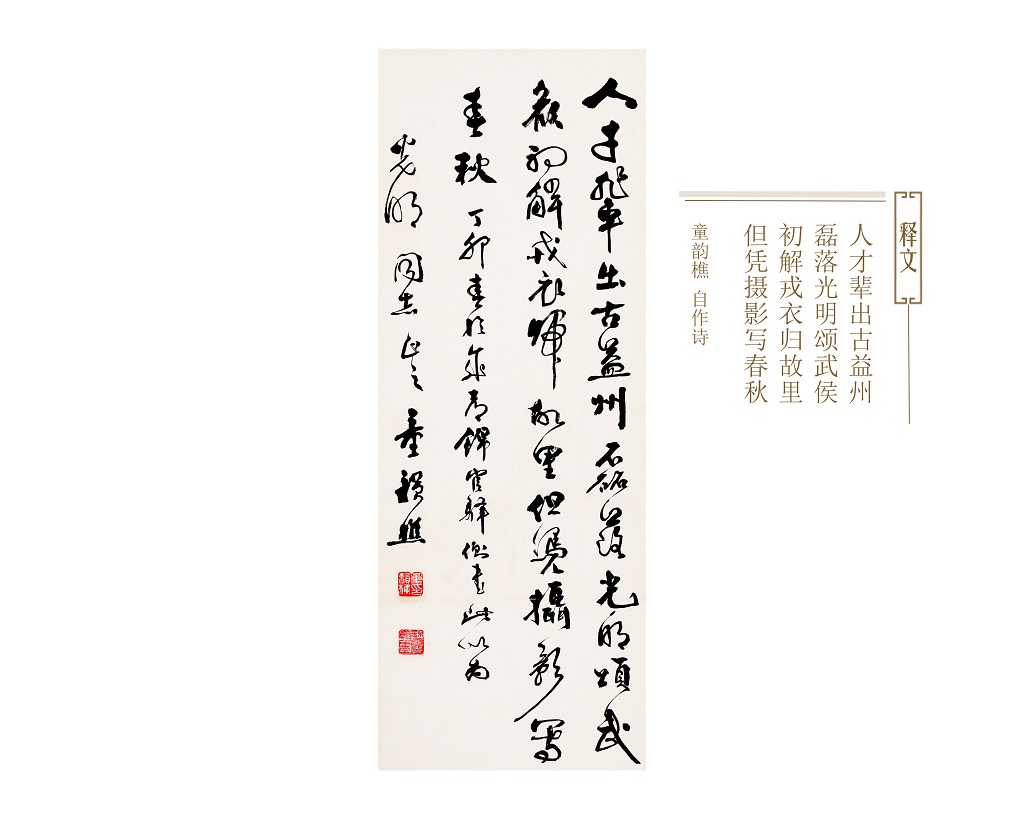 释文
人才辈出古益州
磊落光明颂武侯
初解戎衣归故里
但凭摄影写春秋
童韵樵 自作诗
人才輩出古益州磊落光明頌武
矦初解戎衣歸故里但憑攝影寫
春秋 丁卯春於成都錦官驛側書此以為
光明同志正之 童韻樵